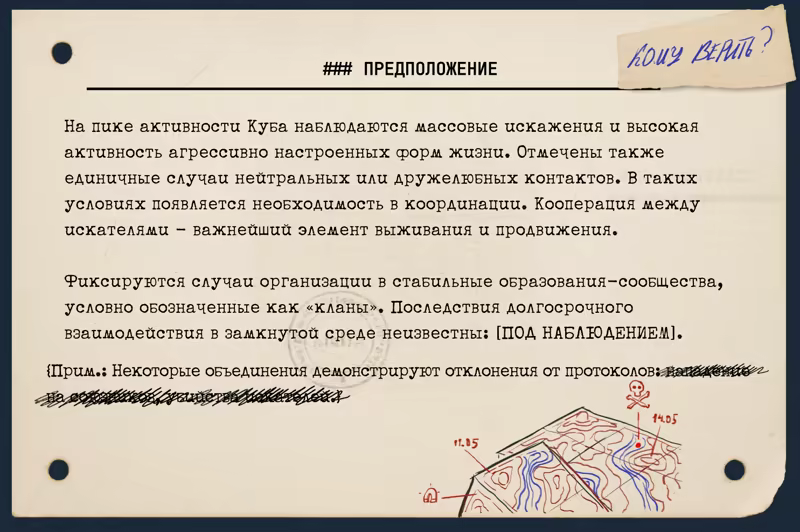 ### ПРЕДПОЛОЖЕНИЕ
КОМУ ВЕРИТЬ?
На пике активности Куба наблюдаются массовые искажения и высокая
активность агрессивно настроенных форм жизни. Отмечены также
единичные случаи нейтральных или дружелюбных контактов. В таких
условиях появляется необходимость в координации. Кооперация между
искателями – важнейший элемент выживания и продвижения.
Фиксируются случаи организации в стабильные образования-сообщества,
условно обозначенные как «кланы». Последствия долгосрочного
взаимодействия в замкнутой среде неизвестны: [ПОД НАБЛЮДЕНИЕМ].
{Прим.: Некоторые объединения демонстрируют отклонения от протоколов:
14.05
11.05